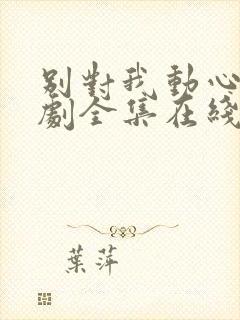 别對我動心
劇全集在綫
葉萍